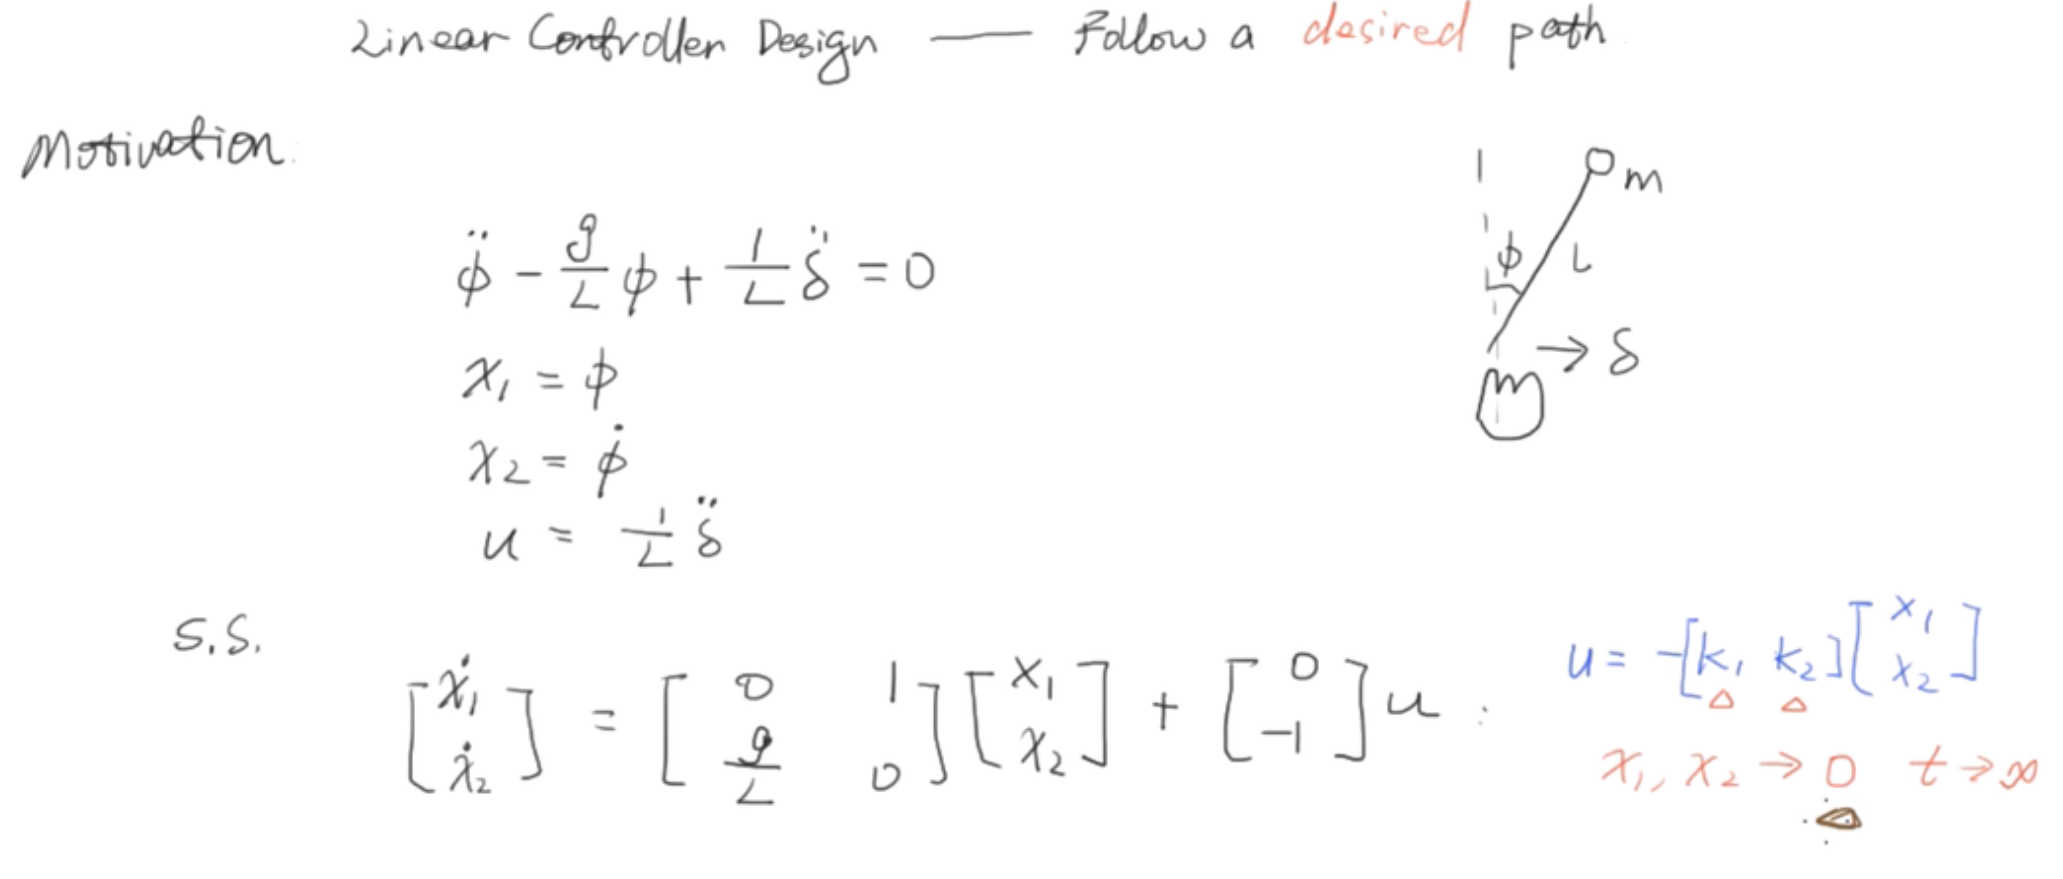 Linear Controller Design — Follow a desired path
Motivation:
φ̈ - g/L φ + 1/L δ̈ = 0
x₁ = φ
x₂ = φ̇
u = 1/L δ̈
φ
L
m
→ δ
m
S.S.
[ẋ₁ ẋ₂] = [0 1 g/L 0] [x₁ x₂] + [0 -1] u :
u = -[k₁ k₂] [x₁ x₂]
x₁, x₂ → 0 t → ∞